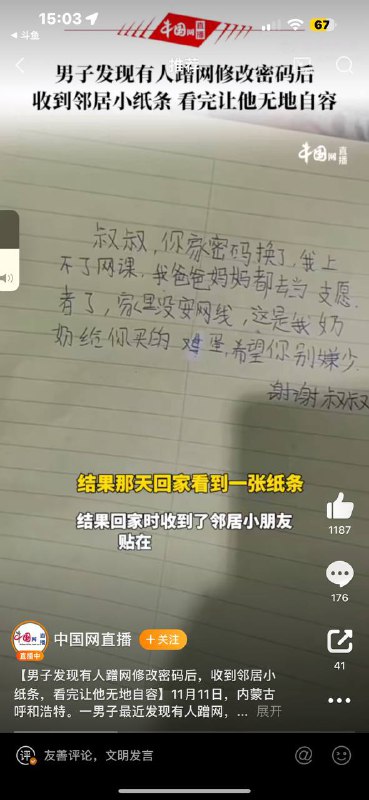 15:03
67
斗鱼
中国网 直播
推荐
男子发现有人蹭网修改密码后
收到邻居小纸条 看完让他无地自容
中国网 直播
叔叔,你家密码换了,我上
不了网课,我爸爸妈妈都去当 支愿
者了,家里没安网线,这是我奶
奶给你买的 鸡蛋,希望你别嫌少.
谢谢叔叔
结果那天回家看到一张纸条
结果回家时收到了邻居小朋友
贴在
1187
176
41
中国网 直播
直播中
中国网直播
+ 关注
【男子发现有人蹭网修改密码后,收到邻居小
纸条,看完让他无地自容】11月11日,内蒙古
呼和浩特。一男子最近发现有人蹭网,... 展开
评 友善评论,文明发言